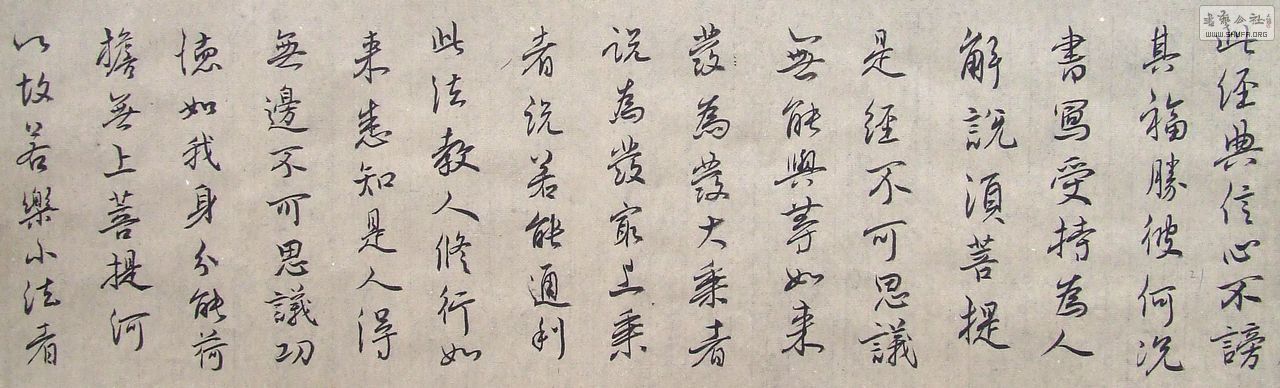 此经典信心不謗
其福勝彼何况
書寫受持為人
解說須菩提
是經不可思議
無能與等如来
發為發大乘者
说為發最上乘
者说若能通利
此法教人修行如
来悉知是人得
無邊不可思議功
德如我身分能荷
擔無上菩提何
以故若樂小法者
書藝公社
WWW.SHUFA.ORG